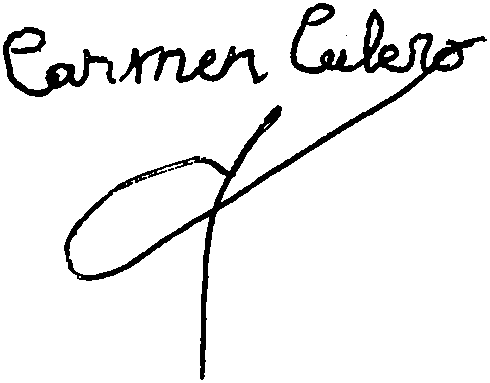 Carmen Culero